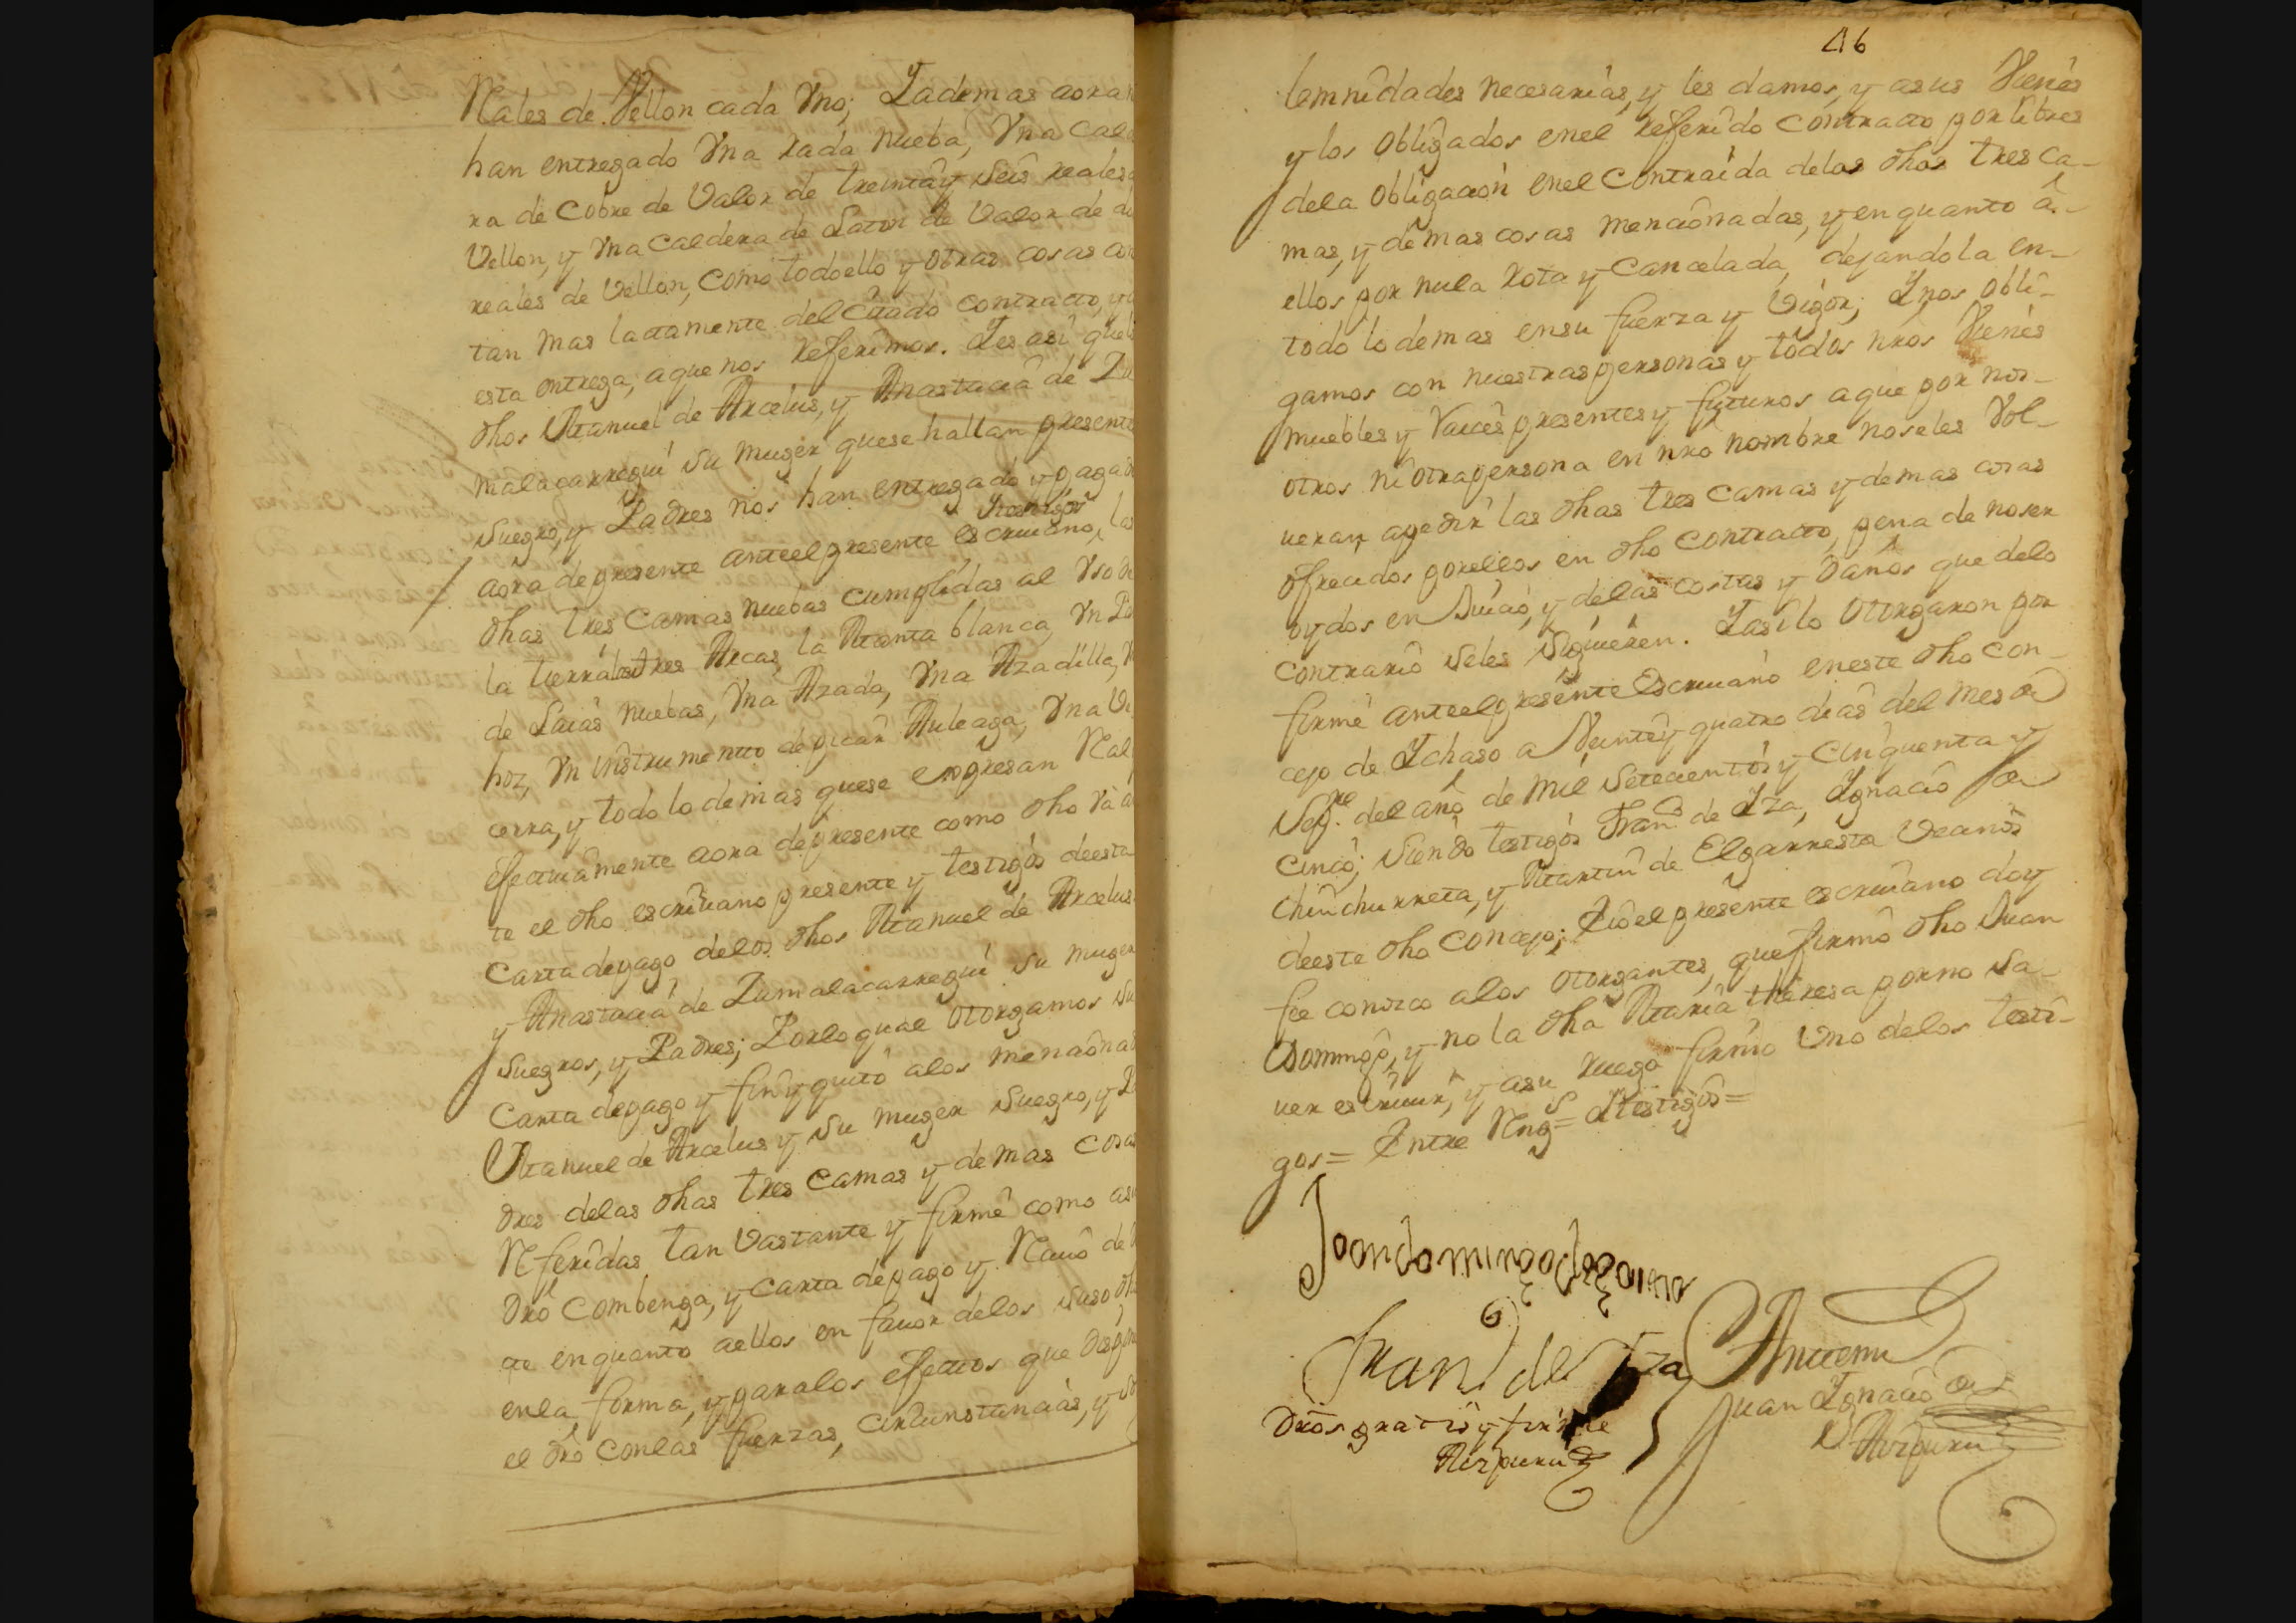 Rales de Vellon cada Vno; Iademas aora
han entregado Vna rada nueba, Vna Cal
ra de Cobre de Valor de treinta y Seis reales
Vellon, y Vna Caldera de Laton de Valor de
reales de Vellon, como todo ello y otras cosas
tan mas lactamente del Citado contracto, y
esta entrega, aque nos referimos. Ies asi que
dhos Manuel de Arcelus, y Anastacia de Zu
malacarregui su muger quese hallan presente
Suegro, y Padres nos han entregado y pagad
Itestigos
aora depresente anteel presente escriuano, las
dhas tres Camas nuebas cumplidas al Vso de
la tierra, las tres Arcas, la Manta blanca, Vn
de Laias nuebas, Vna Azada, Vna Azadilla,
hoz, Vn instrumentto depicar Auleaga, Vna
cerra, y todo lo demas quese expresan Real
efectiuamente aora depresente como dho Va
te el dho escriuano presente y testigos deesta
Carta depago delos dhos Manuel de Arcelus
y Anastacia de Zumalacarregui su muger
Suegros, y Padres; Porloqual otorgamos
Carta depago y finyquito alos mencionad
Manuel de Arcelus y su muger Suegro, y Pa
dres delas dhas tres Camas y demas cosas
Referidas tan Vastante y firme como asu
dro Combenga, y carta depago y Reciuo de
te enquanto aellos en fauor delos suso dh
enla forma, y paralos efectos que dispon
el dro conlas fuerzas, circunstancias, y so
46
lemnidades necesarias, y les damos, y asus Vienes
y los Obligados enel referido Contracto por libres
dela Obligacion enel Contraida delas dhas tres ca-
mas, y demas cosas mencionadas, y en quanto á-
ellos por nula rota y Cancelada, dejandola en-
todo lo demas ensu fuerza y Vigor; Inos obli-
gamos con nuestras personas y todos nros Vienes
muebles y raices presentes y futuros a que por nos-
otros ni otra persona en nro nombre noseles Vol-
ueran apedir las dhas tres Camas y demas cosas
ofrecidos porellos en dho Contracto, pena de noser
oydos en Juicio, y delas costas y daños que delo
contrario seles Siguieren. Iasilo Otorgaron por
firme anteel presente Escriuano eneste dho con-
cejo de Ichaso a Veinte y quatro dias del mes de
Sepre. del año de mil Setecientos y Cinquenta y
Cinco; Siendo testigos Franco de Iza, Ignacio de
Chinchurreta, y Martin de Elgarresta Vecinos
deeste dho Concejo; Eio el presente escriuano doy
fee conozco alos otorgantes, que firmo dho Juan
Domingo, y no la dha Maria theresa por no sa-
uer escriuir, y asu ruego firmo Vno delos testi-
gos= Entre Rengs= Itestigos=
Fran.co de Iza
Anttemi
Juan Ignacio de
Aizpuru
Dros gratis y firme
Aizpuru